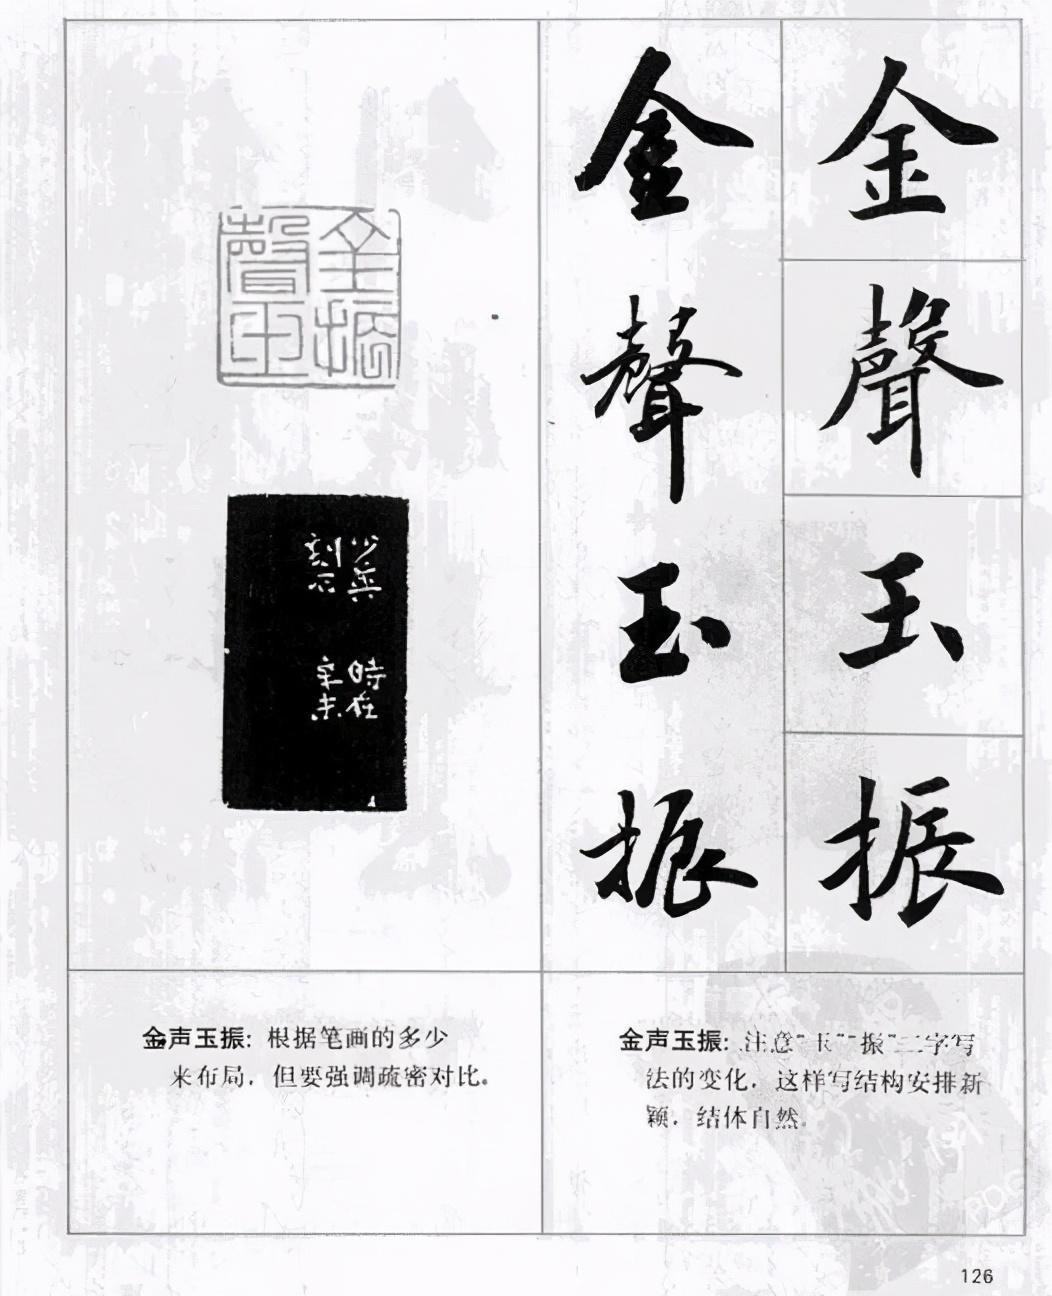 金
聲
玉
振
金
聲
玉
振
金聲玉振
少
刻石
時在
辛未
金声玉振：根据笔画的多少
来布局，但要强调疏密对比。
金声玉振：注意“玉”“振”二字写
法的变化，这样写结构安排新
颖，结体自然。
126